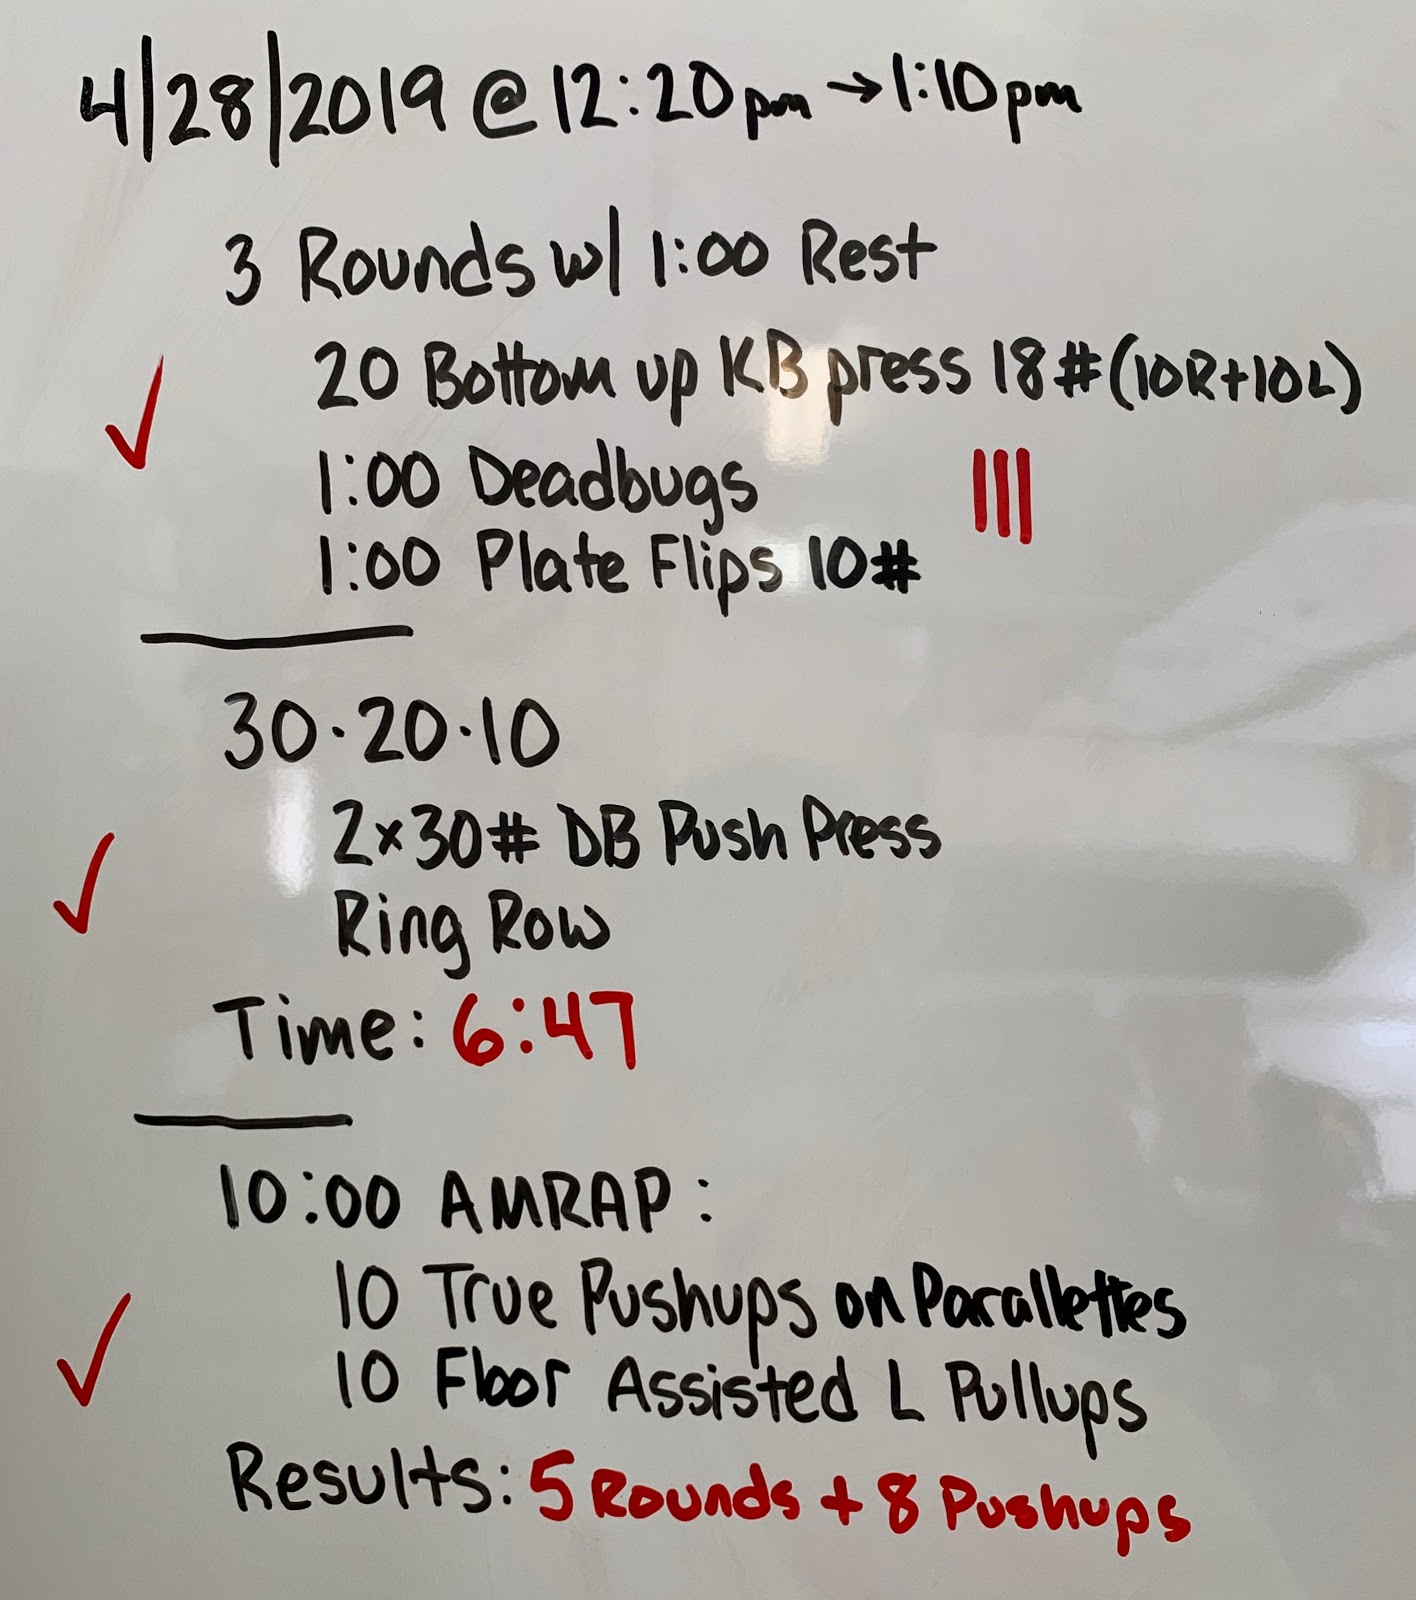 4/28/2019 @ 12:20pm → 1:10pm
3 Rounds w/ 1:00 Rest
20 Bottom up KB press 18# (10R+10L)
1:00 Deadbugs
III
1:00 Plate Flips 10#
30·20·10
2x30# DB Push Press
Ring Row
Time: 6:47
10:00 AMRAP:
10 True Pushups on Parallettes
10 Floor Assisted L Pullups
Results: 5 Rounds + 8 Pushups